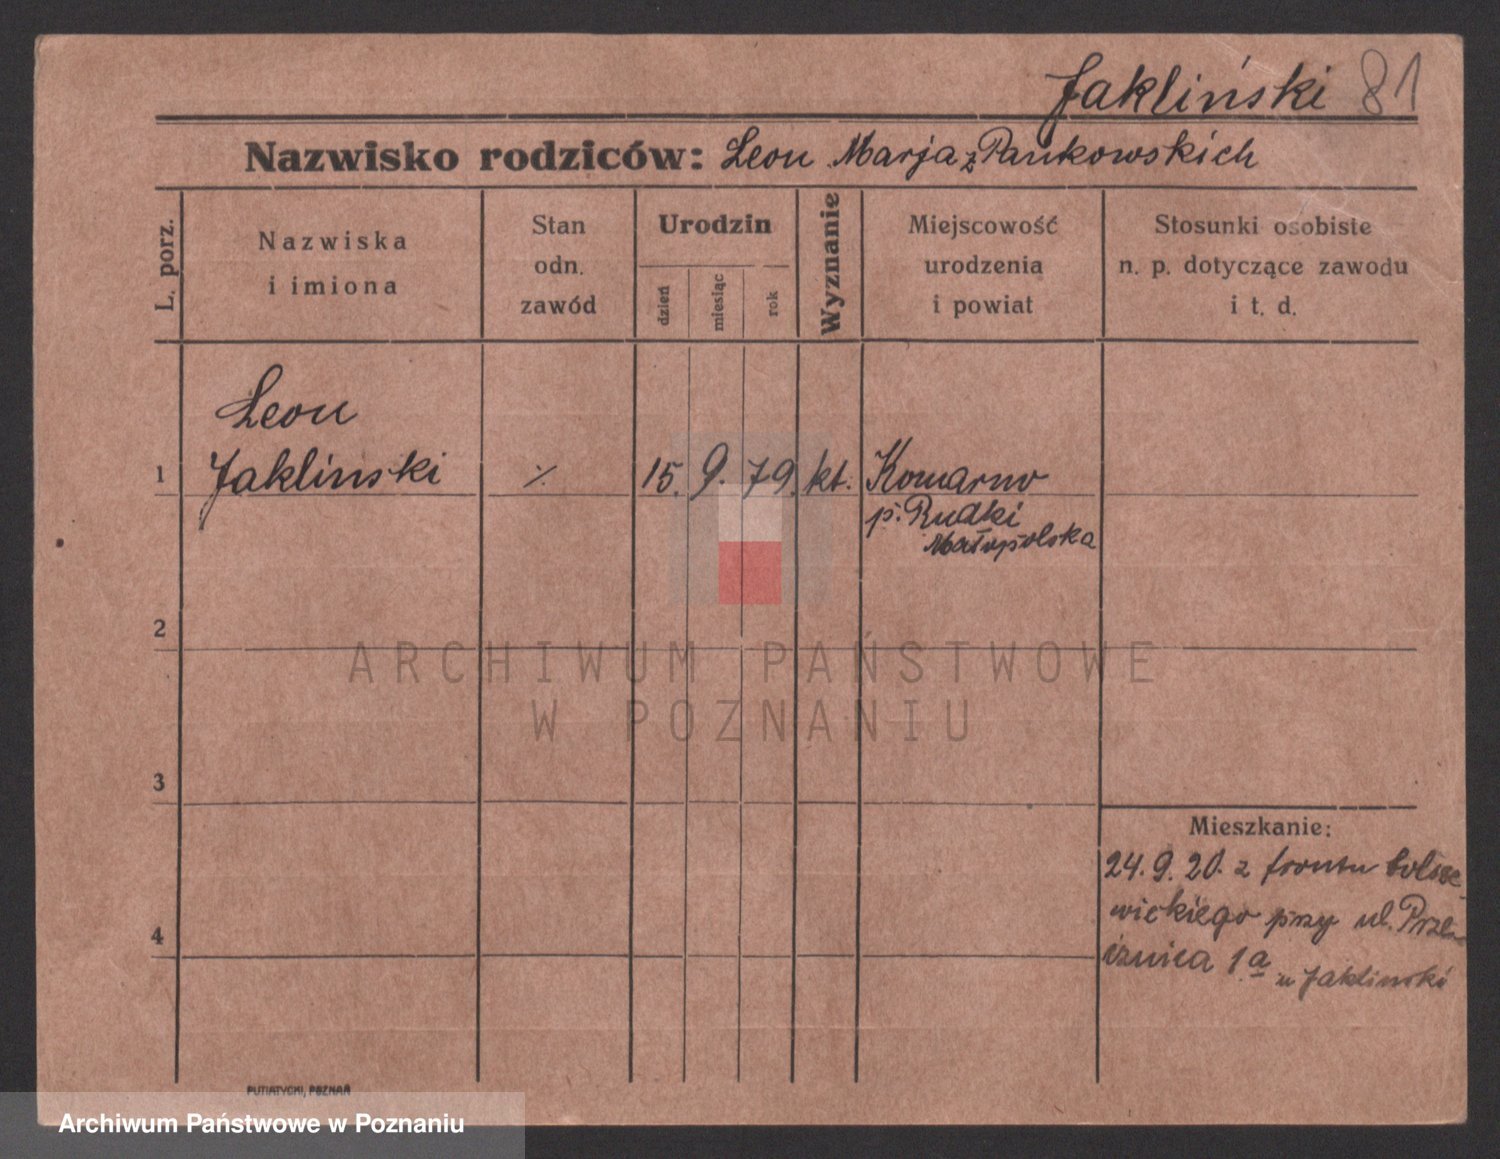 Jakliński 81
Nazwisko rodziców: Leon Marja z Pankowskich
L. porz.
Nazwiska
i imiona
Stan
odn.
zawód
Urodzin
dzień
miesiąc
rok
Wyznanie
Miejscowość
urodzenia
i powiat
Stosunki osobiste
n. p. dotyczące zawodu
i t. d.
Leon
1 Jaklinski ./. 15. 9. 79. kt. Komarno
p. Rudki
Małopolska
2
3
4
Mieszkanie:
24. 9. 20. z frontu bolsze-
wickiego przy ul. Prze
cznica 1a u Jaklinski
ARCHIWUM PAŃSTWOWE
W POZNANIU
PUTIATYCKI, POZNAŃ
Archiwum Państwowe w Poznaniu